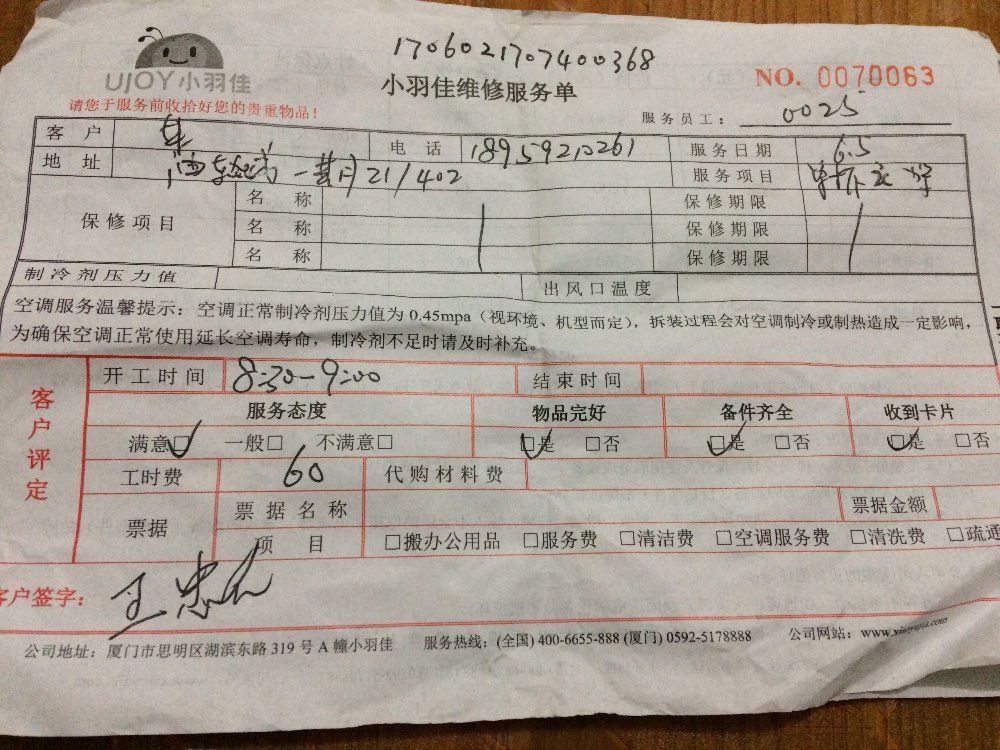 1706021707400368
UJOY小羽佳
小羽佳维修服务单
NO. 0070063
请您于服务前收拾好您的贵重物品！
服务员工： 0025
客 户 电 话 18959210261 服务日期 6.5
地 址 一期21/402 服务项目
保修项目 名 称 保修期限
名 称 保修期限
名 称 保修期限
制冷剂压力值 出风口温度
空调服务温馨提示：空调正常制冷剂压力值为 0.45mpa（视环境、机型而定），拆装过程会对空调制冷或制热造成一定影响，
为确保空调正常使用延长空调寿命，制冷剂不足时请及时补充。
客户评定
开工时间 8:30-9:00 结束时间
服务态度 物品完好 备件齐全 收到卡片
满意☑ 一般□ 不满意□ ☑是 □否 ☑是 □否 ☑是 □否
工时费 60 代购材料费
票据 票据名称 票据金额
项 目 □搬办公用品 □服务费 □清洁费 □空调服务费 □清洗费 □疏通
客户签字：王忠
公司地址：厦门市思明区湖滨东路 319 号 A 幢小羽佳 服务热线：(全国) 400-6655-888 (厦门) 0592-5178888 公司网站：